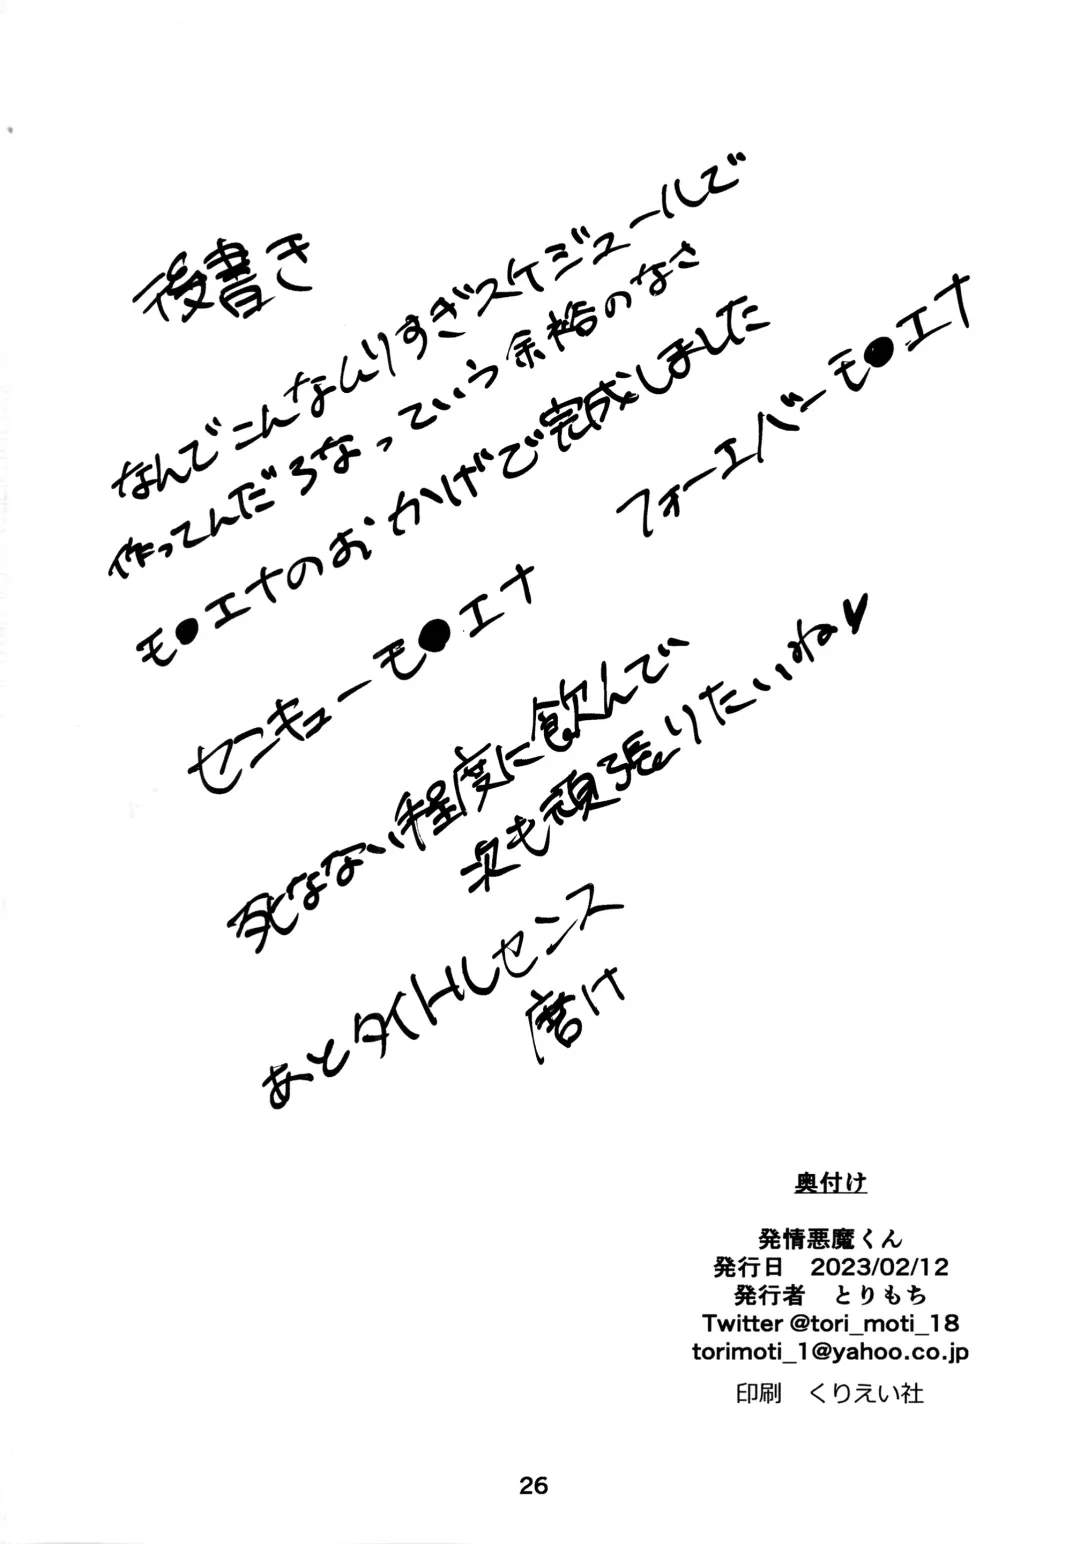 後書き
なんでこんなんりすぎスケジュールで
作ってんだろなっていう余裕のなさ
モ●エナのおかげで完成しました
センキューモ●エナ
フォーエバーモ●エナ
死なない程度に飲んで
次も頑張りたいね♥
あとタイトルセンス
磨け
奥付け
発情悪魔くん
発行日 2023/02/12
発行者 とりもち
Twitter @tori_moti_18
torimoti_1@yahoo.co.jp
印刷 くりえい社
26